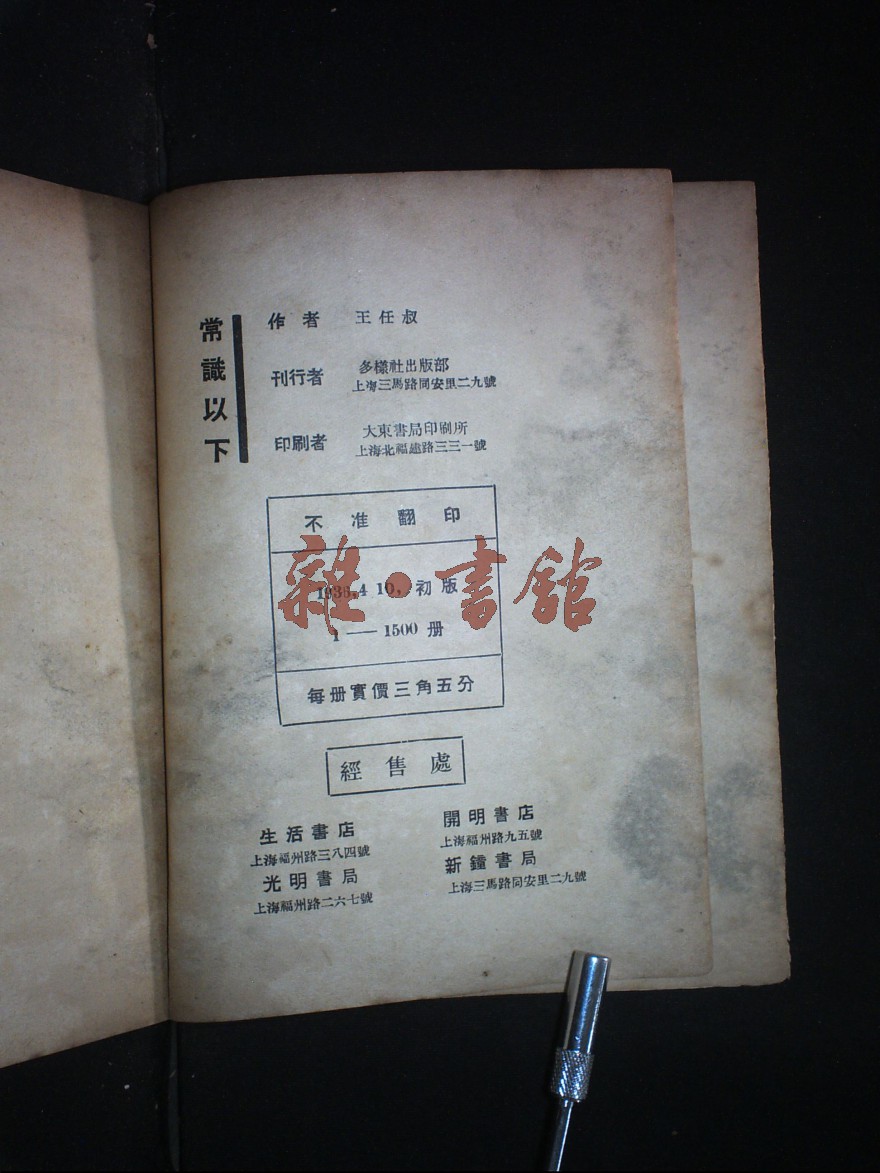 常識以下
作者 王任叔
刊行者 多樣社出版部
上海三馬路同安里二九號
印刷者 大東書局印刷所
上海北福建路三三一號
不准翻印
1936,4 10, 初版
1 — 1500 册
每册實價三角五分
雜·書館
經售處
生活書店
上海福州路三八四號
光明書局
上海福州路二六七號
開明書店
上海福州路九五號
新鐘書局
上海三馬路同安里二九號